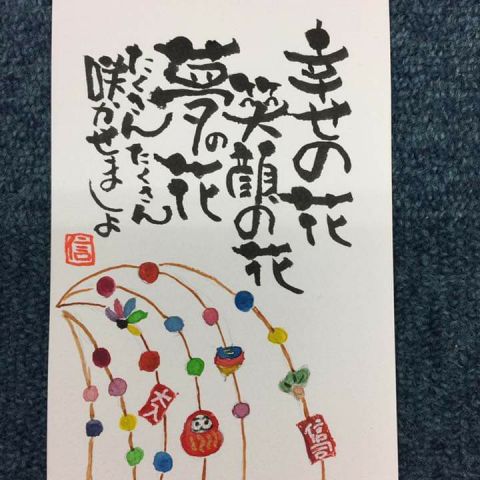 幸せの花
笑顔の花
夢の花
たくさんたくさん
咲かせましょ
信
大入
信吾